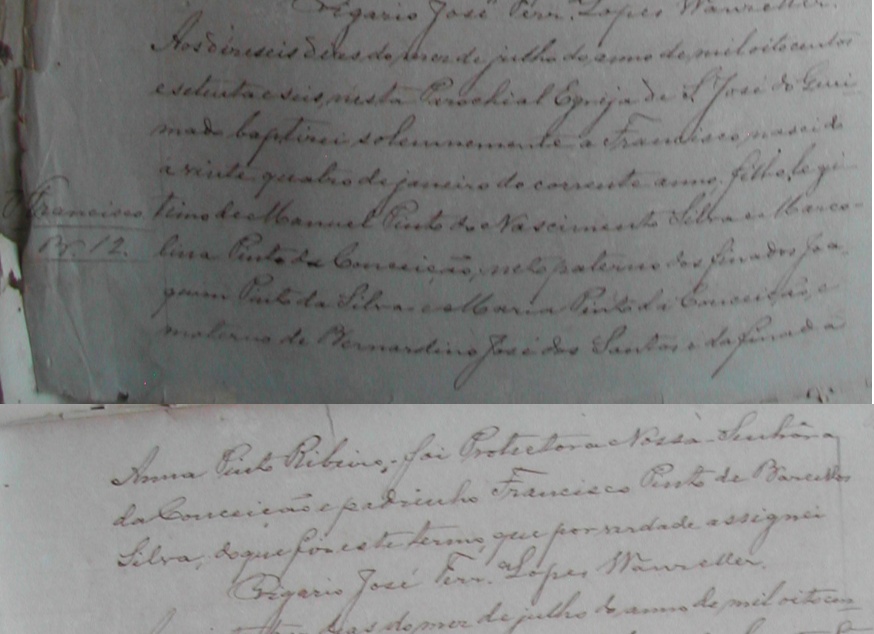 Vigario José Ferr.ª Lopes Wanzeller.
Aos dezeseis dias do mez de julho do anno de mil oitocentos
e setenta e seis, nesta Parochial Egreja de S. José do Guri-
mado baptizei solemnemente a Francisco, nascido
a vinte quatro de janeiro do corrente anno, filho legi-
Francisco timo de Manuel Pinto do Nascimento Silva e Marco-
Pg. 12. lina Pinto da Conceição, neto paterno dos finados Joa-
quim Pinto da Silva e Maria Pinto da Conceição, e
materno de Bernardino José dos Santos e da finada
Anna Pinto Ribeiro; foi Protectora Nossa Senhora
da Conceição e padrinho Francisco Pinto de Barcellos
Silva, do que fiz este termo, que por verdade assignei
Vigario José Ferr.ª Lopes Wanzeller.
dias do mez de julho do anno de mil oitocen